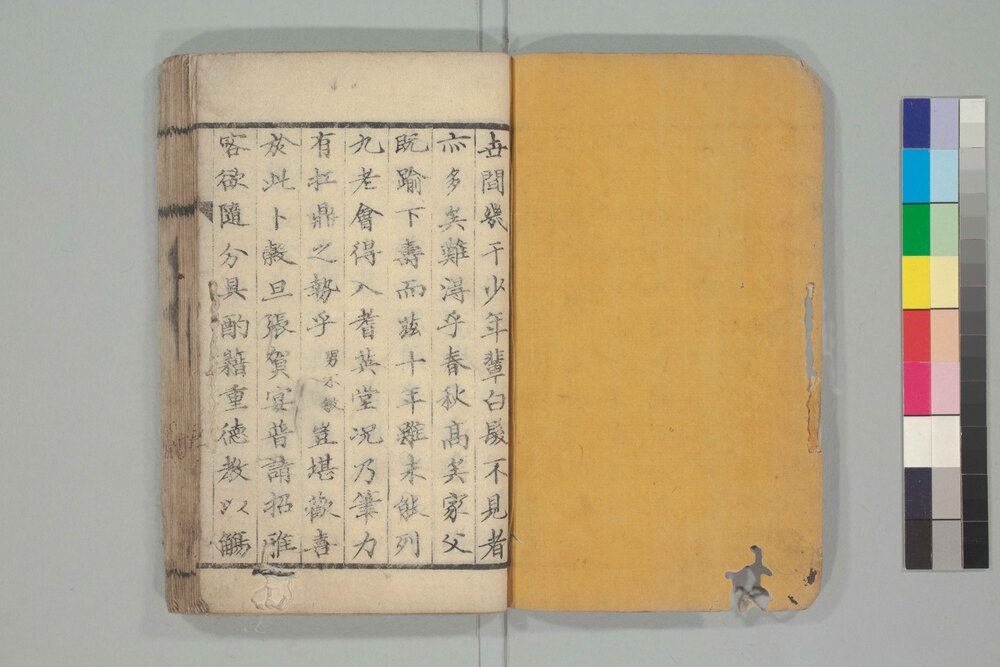 世間幾千少年輩白髮不見者
亦多矣難得乎春秋高矣家父
既踰下壽而玆十年雖未能列
九老會得入耆英堂况乃筆力
有扛鼎之勢乎男不敏豈堪歡喜
於此卜穀旦張賀宴普請招雅
客欲隨分具酌藉重德教以觴